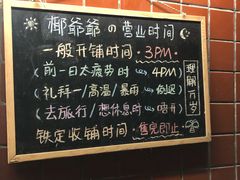 椰爷爷の营业时间
一般开铺时间·3PM·
(前一日太疲劳时 ⇝ 4PM)
(礼拜一/高温/暴雨 ⇝ 倒闭)
(去旅行/想休息时 ⇝ 唔开)
铁定收铺时间·售完即止·
理解万岁